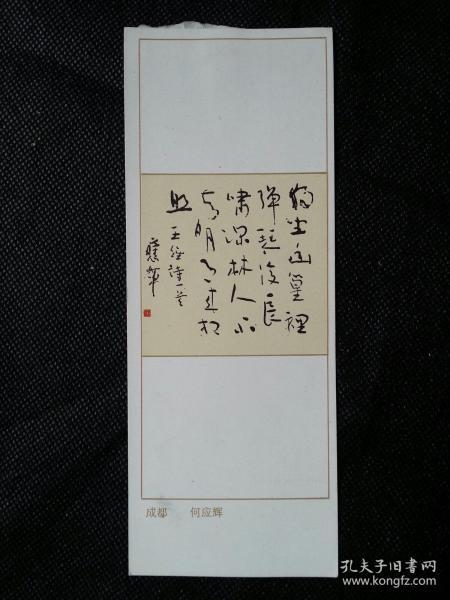 獨坐幽篁裡
彈琴復長
嘯深林人不
知明月来相
照 王維詩一首
應輝
成都 何应辉
孔夫子旧书网
www.kongfz.com